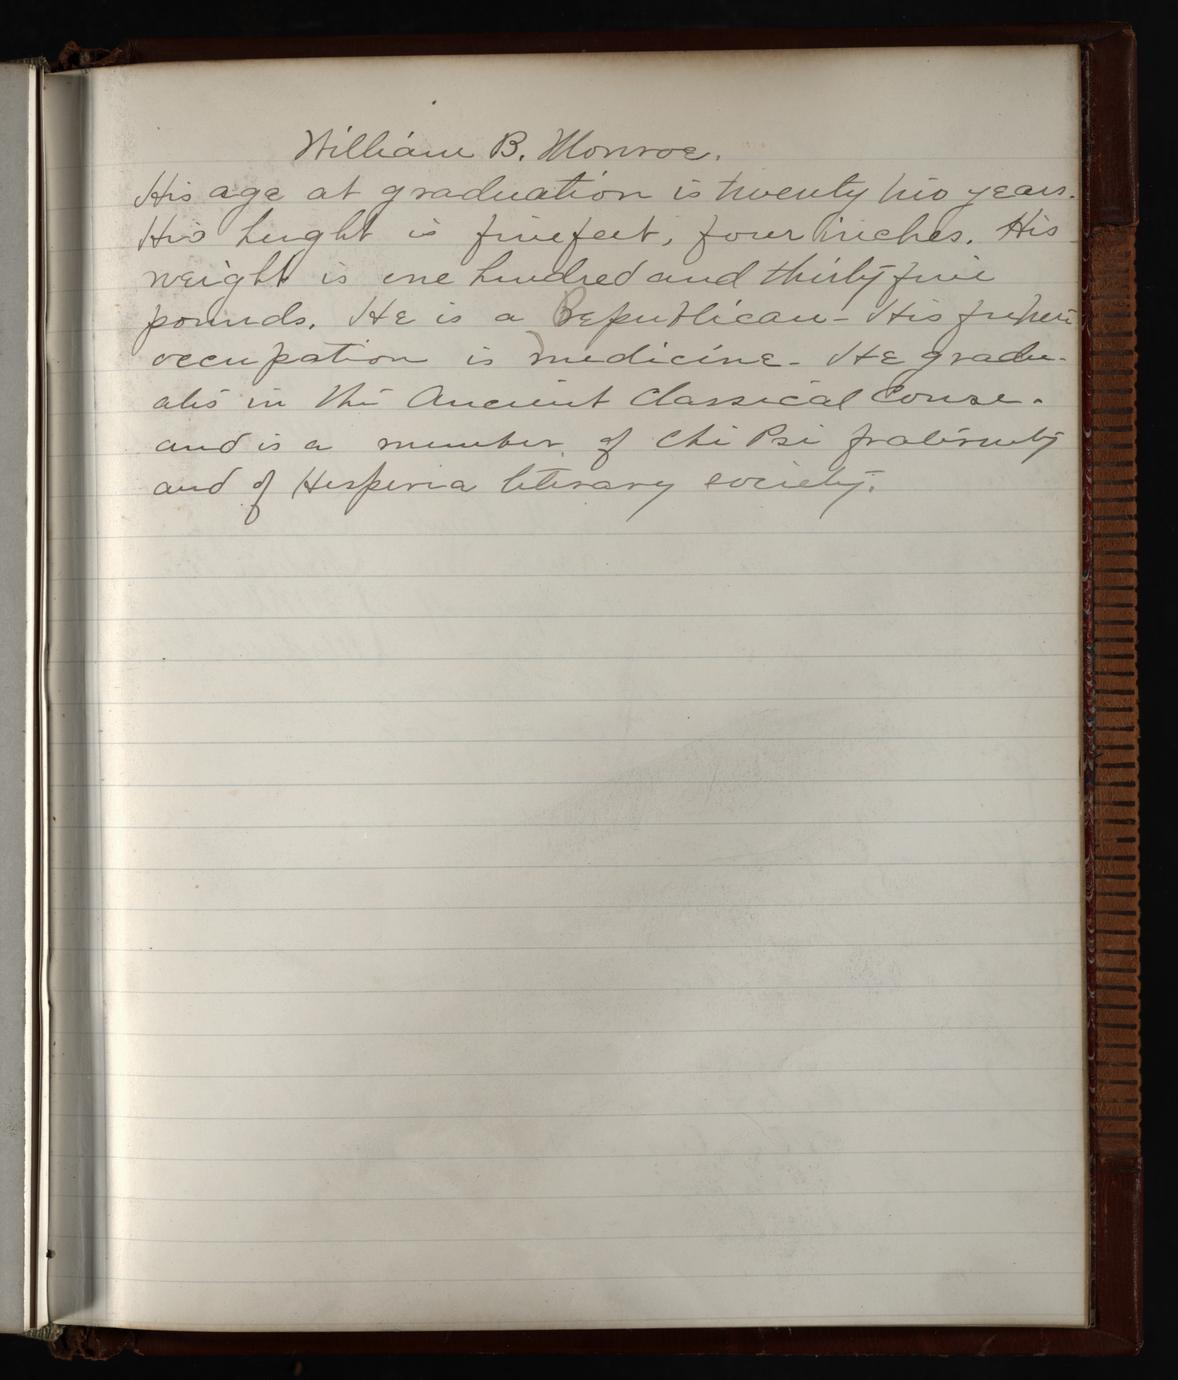 William B. Monroe.
His age at graduation is twenty two years.
His height is five feet, four inches. His
weight is one hundred and thirty five
pounds. He is a Republican - His future
occupation is medicine - He gradu-
ates in the Ancient Classical Course.
and is a member of Chi Psi fraternity
and of Hesperia literary society.